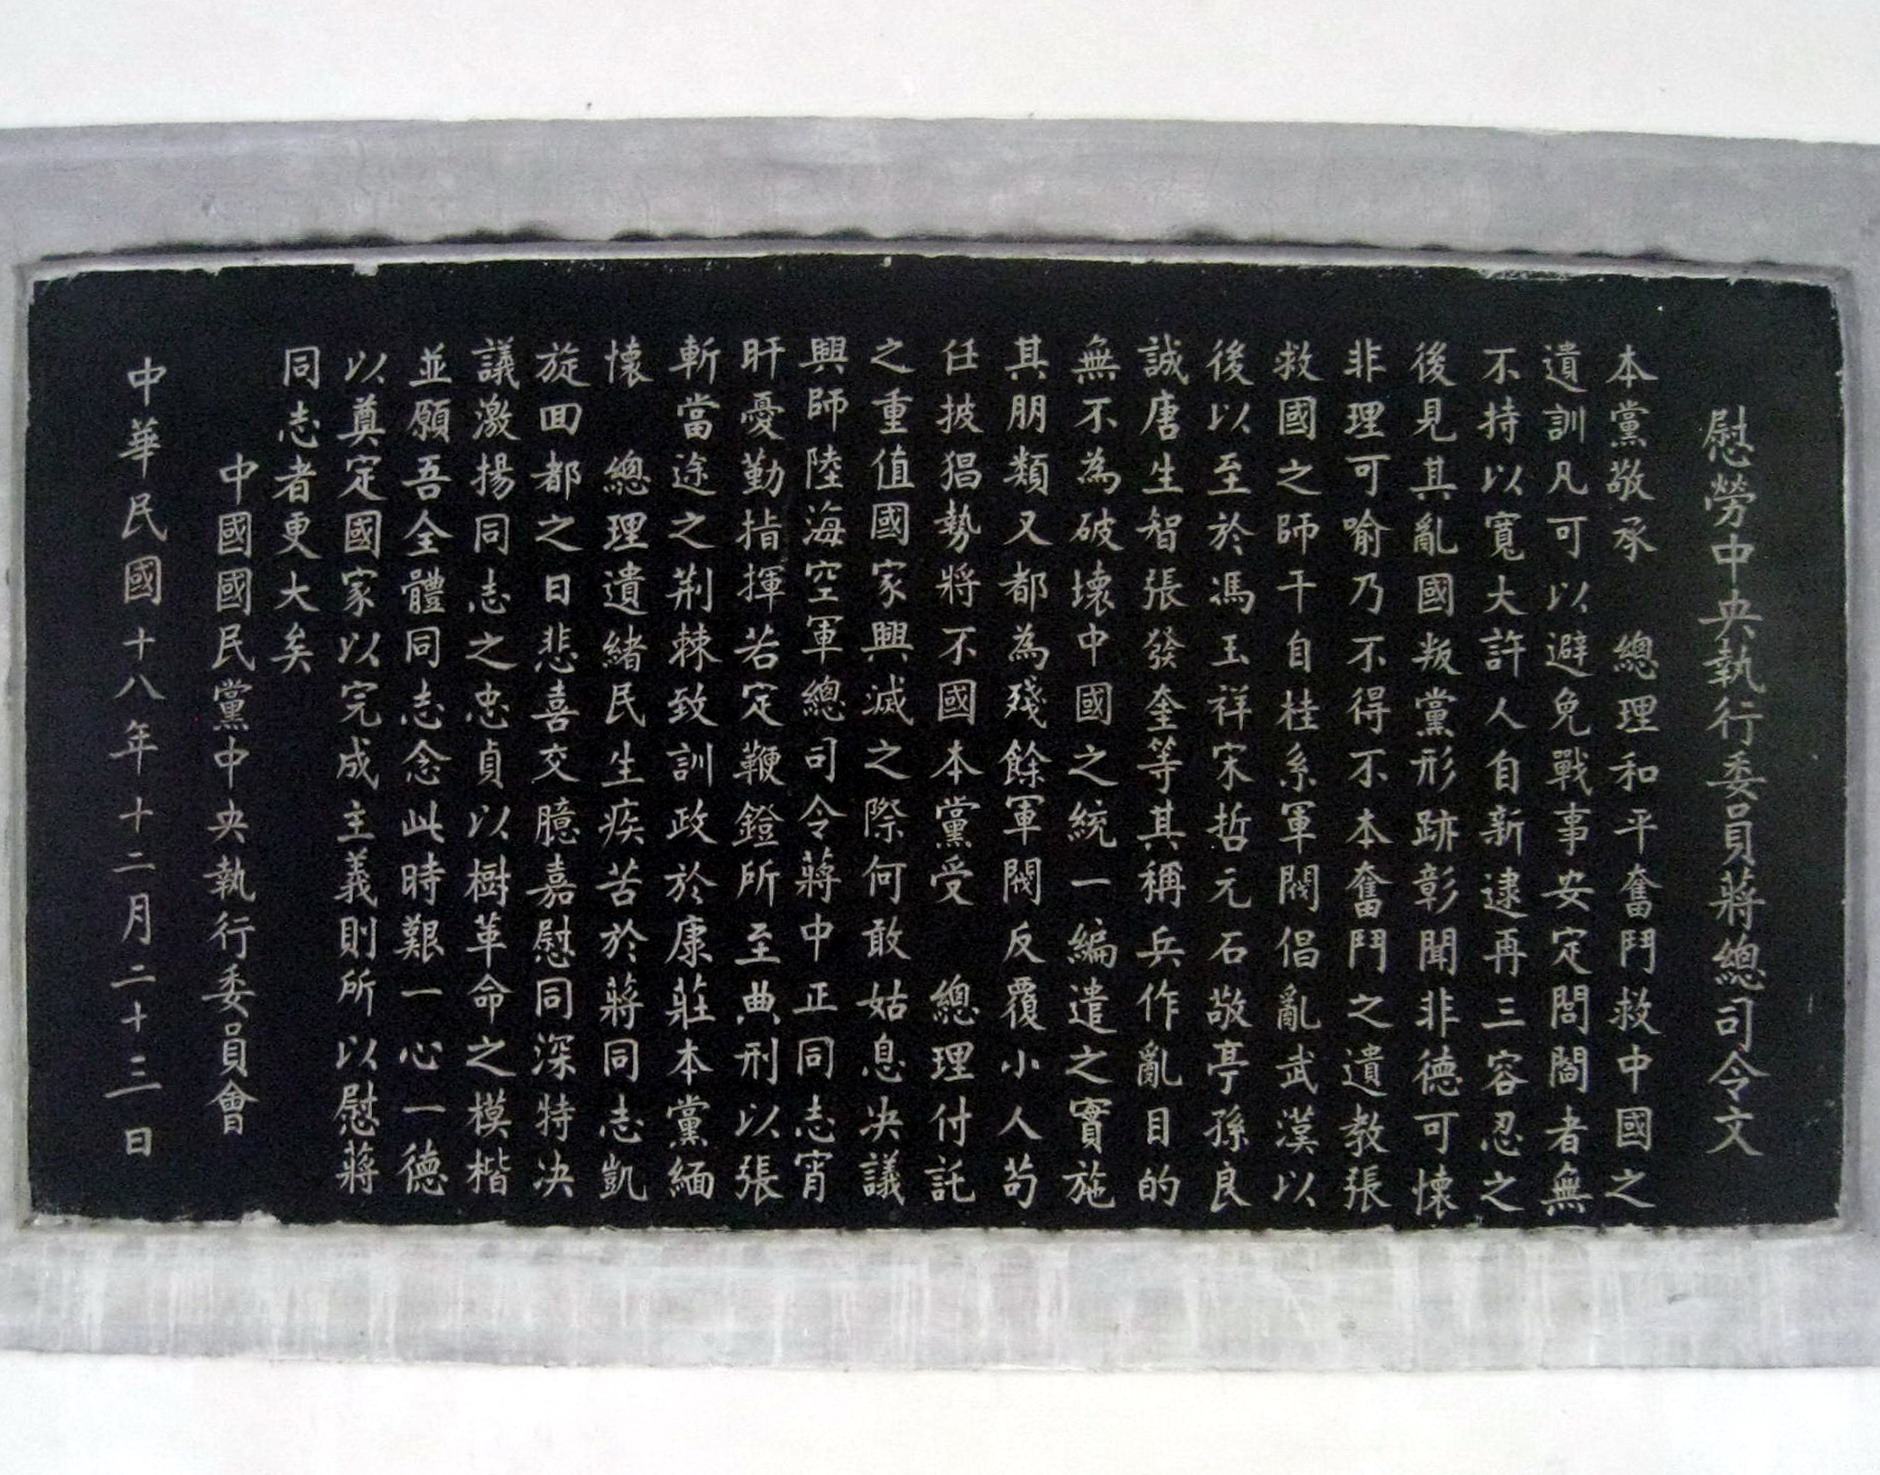 慰勞中央執行委員蔣總司令文
本黨敬承　總理和平奮鬥救中國之
遺訓凡可以避免戰事安定閭閻者無
不持以寬大許人自新逮再三容忍之
後見其亂國叛黨形跡彰聞非德可懷
非理可喻乃不得不本奮鬥之遺教張
救國之師干自桂系軍閥倡亂武漢以
後以至於馮玉祥宋哲元石敬亭孫良
誠唐生智張發奎等其稱兵作亂目的
無不為破壞中國之統一編遣之實施
其朋類又都為殘餘軍閥反覆小人苟
任披猖勢將不國本黨受　總理付託
之重值國家興滅之際何敢姑息决議
興師陸海空軍總司令蔣中正同志宵
旰憂勤指揮若定鞭鐙所至典刑以張
斬當途之荆棘致訓政於康莊本黨緬
懷　總理遺緒民生疾苦於蔣同志凱
旋回都之日悲喜交臆嘉慰同深特决
議激揚同志之忠貞以樹革命之模楷
並願吾全體同志念此時艱一心一德
以奠定國家以完成主義則所以慰蔣
同志者更大矣
中國國民黨中央執行委員會
中華民國十八年十二月二十三日